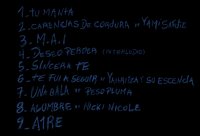 1_ TU MANTA
2_ CARENCIAS DE CORDURA " YAMI SAFDIE
3_ M.A.I
4_ DESCO PERDER (INTERLUDIO)
5_ SINCERA TE
6_ TE FUI A SEGUIR " YAHRITZA Y SU ESENCIA
7_ UNA BALA " PESO PLUMA
8_ ALUMBRE " NICKI NICOLE
9_ AIRE